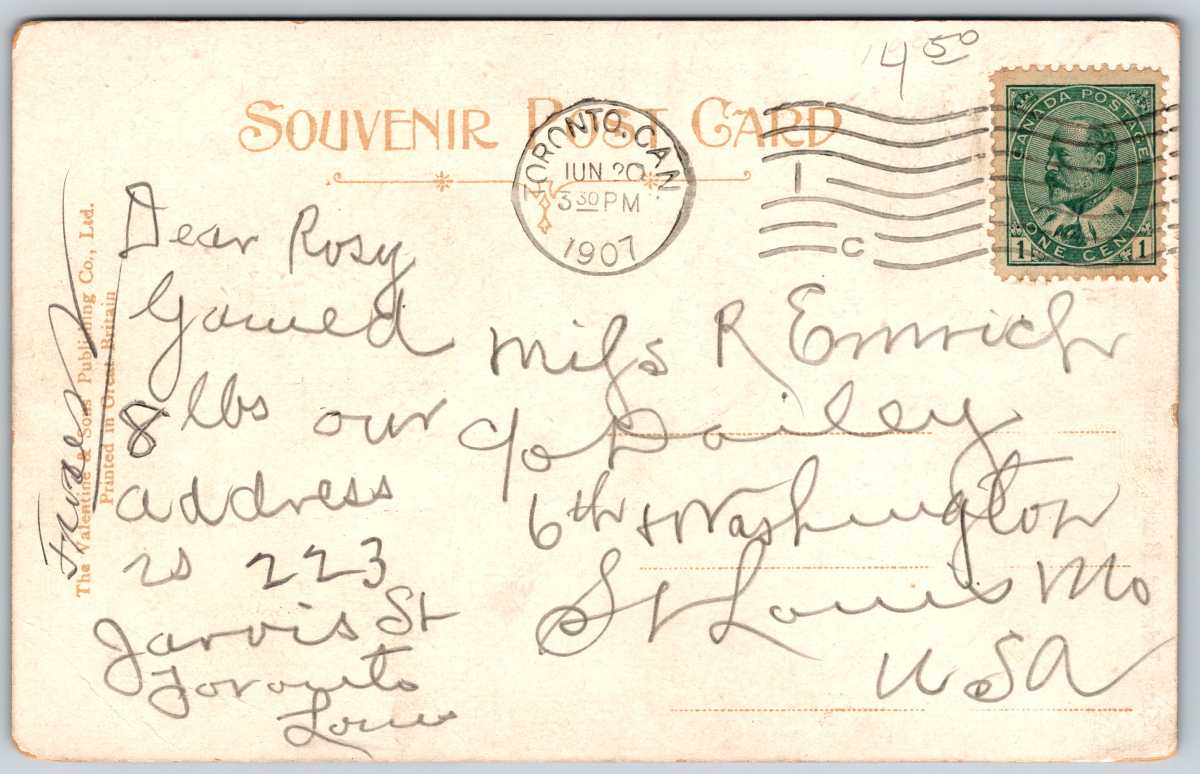 14 50
SOUVENIR POST CARD
TORONTO, CAN.
JUN 20
3 30 PM
1907
1
C
CANADA POSTAGE
1 ONE CENT 1
The Valentine & Sons Publishing Co., Ltd.
Printed in Great Britain
Dear Rosy
Gained
8 lbs our
address
is 223
Jarvis St
Toronto
Louis
Miss R Emrich
c/o Dailey
6th & Washington
St Louis Mo
USA